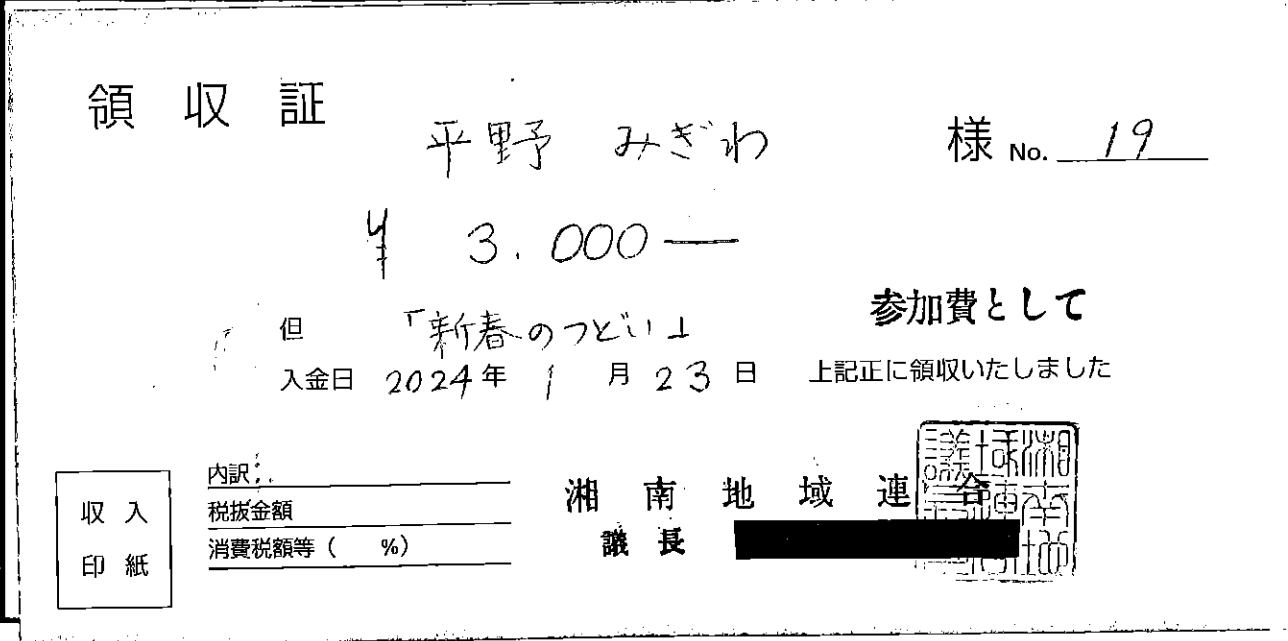 領収証
平野 みぎわ 様 No. 19
¥ 3.000―
但 「新春のつどい」 参加費として
入金日 2024年 1月 23日 上記正に領収いたしました
収入
印紙
内訳:
税抜金額
消費税額等( %)
湘南地域連合
議長